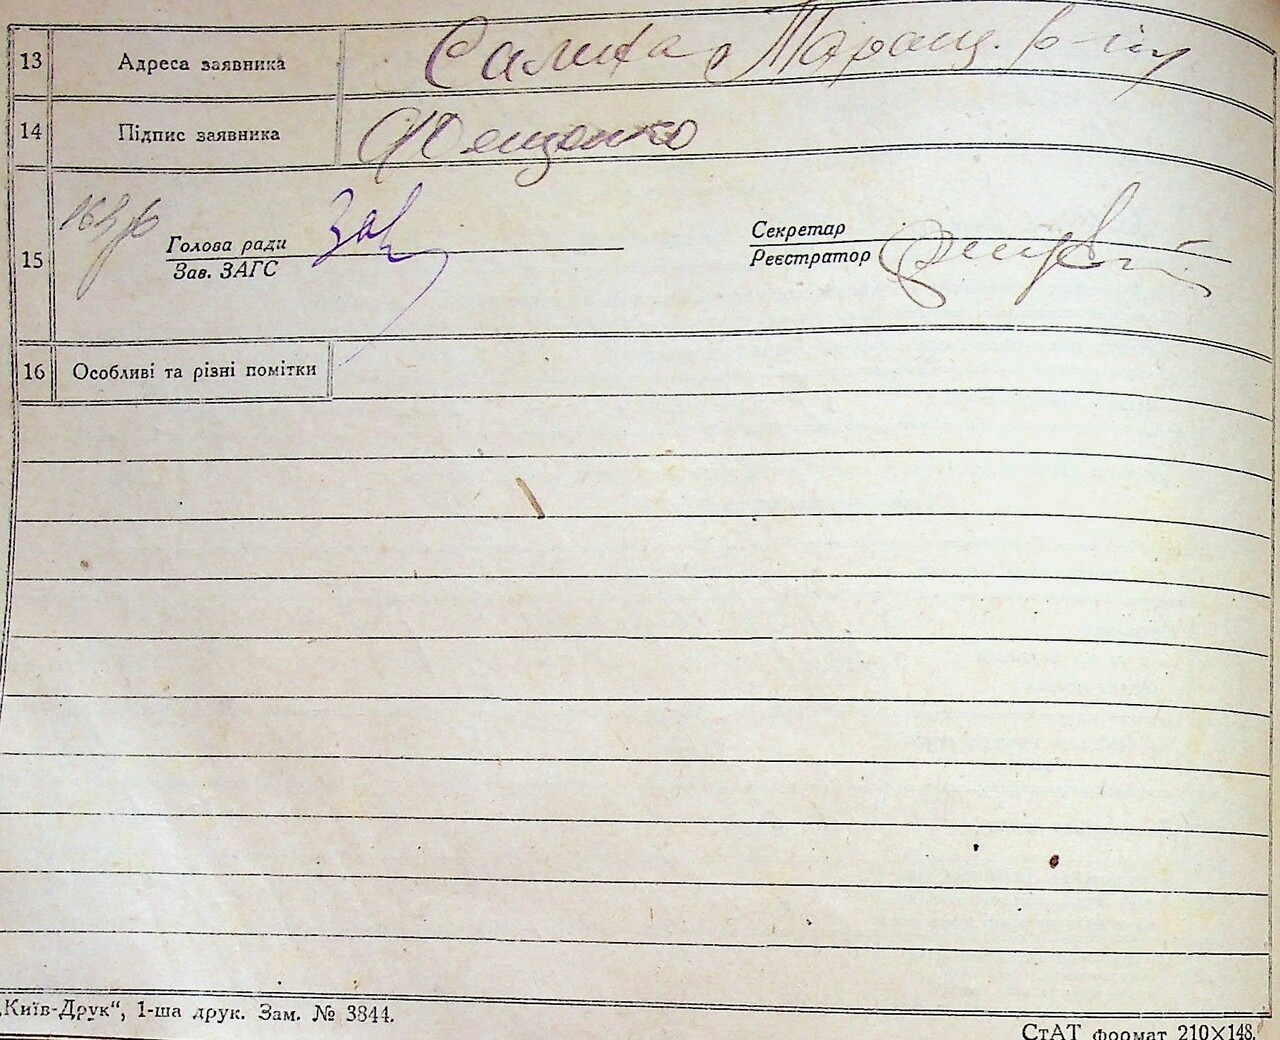 13 Адреса заявника Салиха Таращ. р-ну
14 Підпис заявника Ющенко
15 Голова ради Зав. Секретар
Зав. ЗАГС Реєстратор
16 Особливі та різні помітки
„Київ-Друк“, 1-ша друк. Зам. № 3844.
СтАТ формат 210×148.